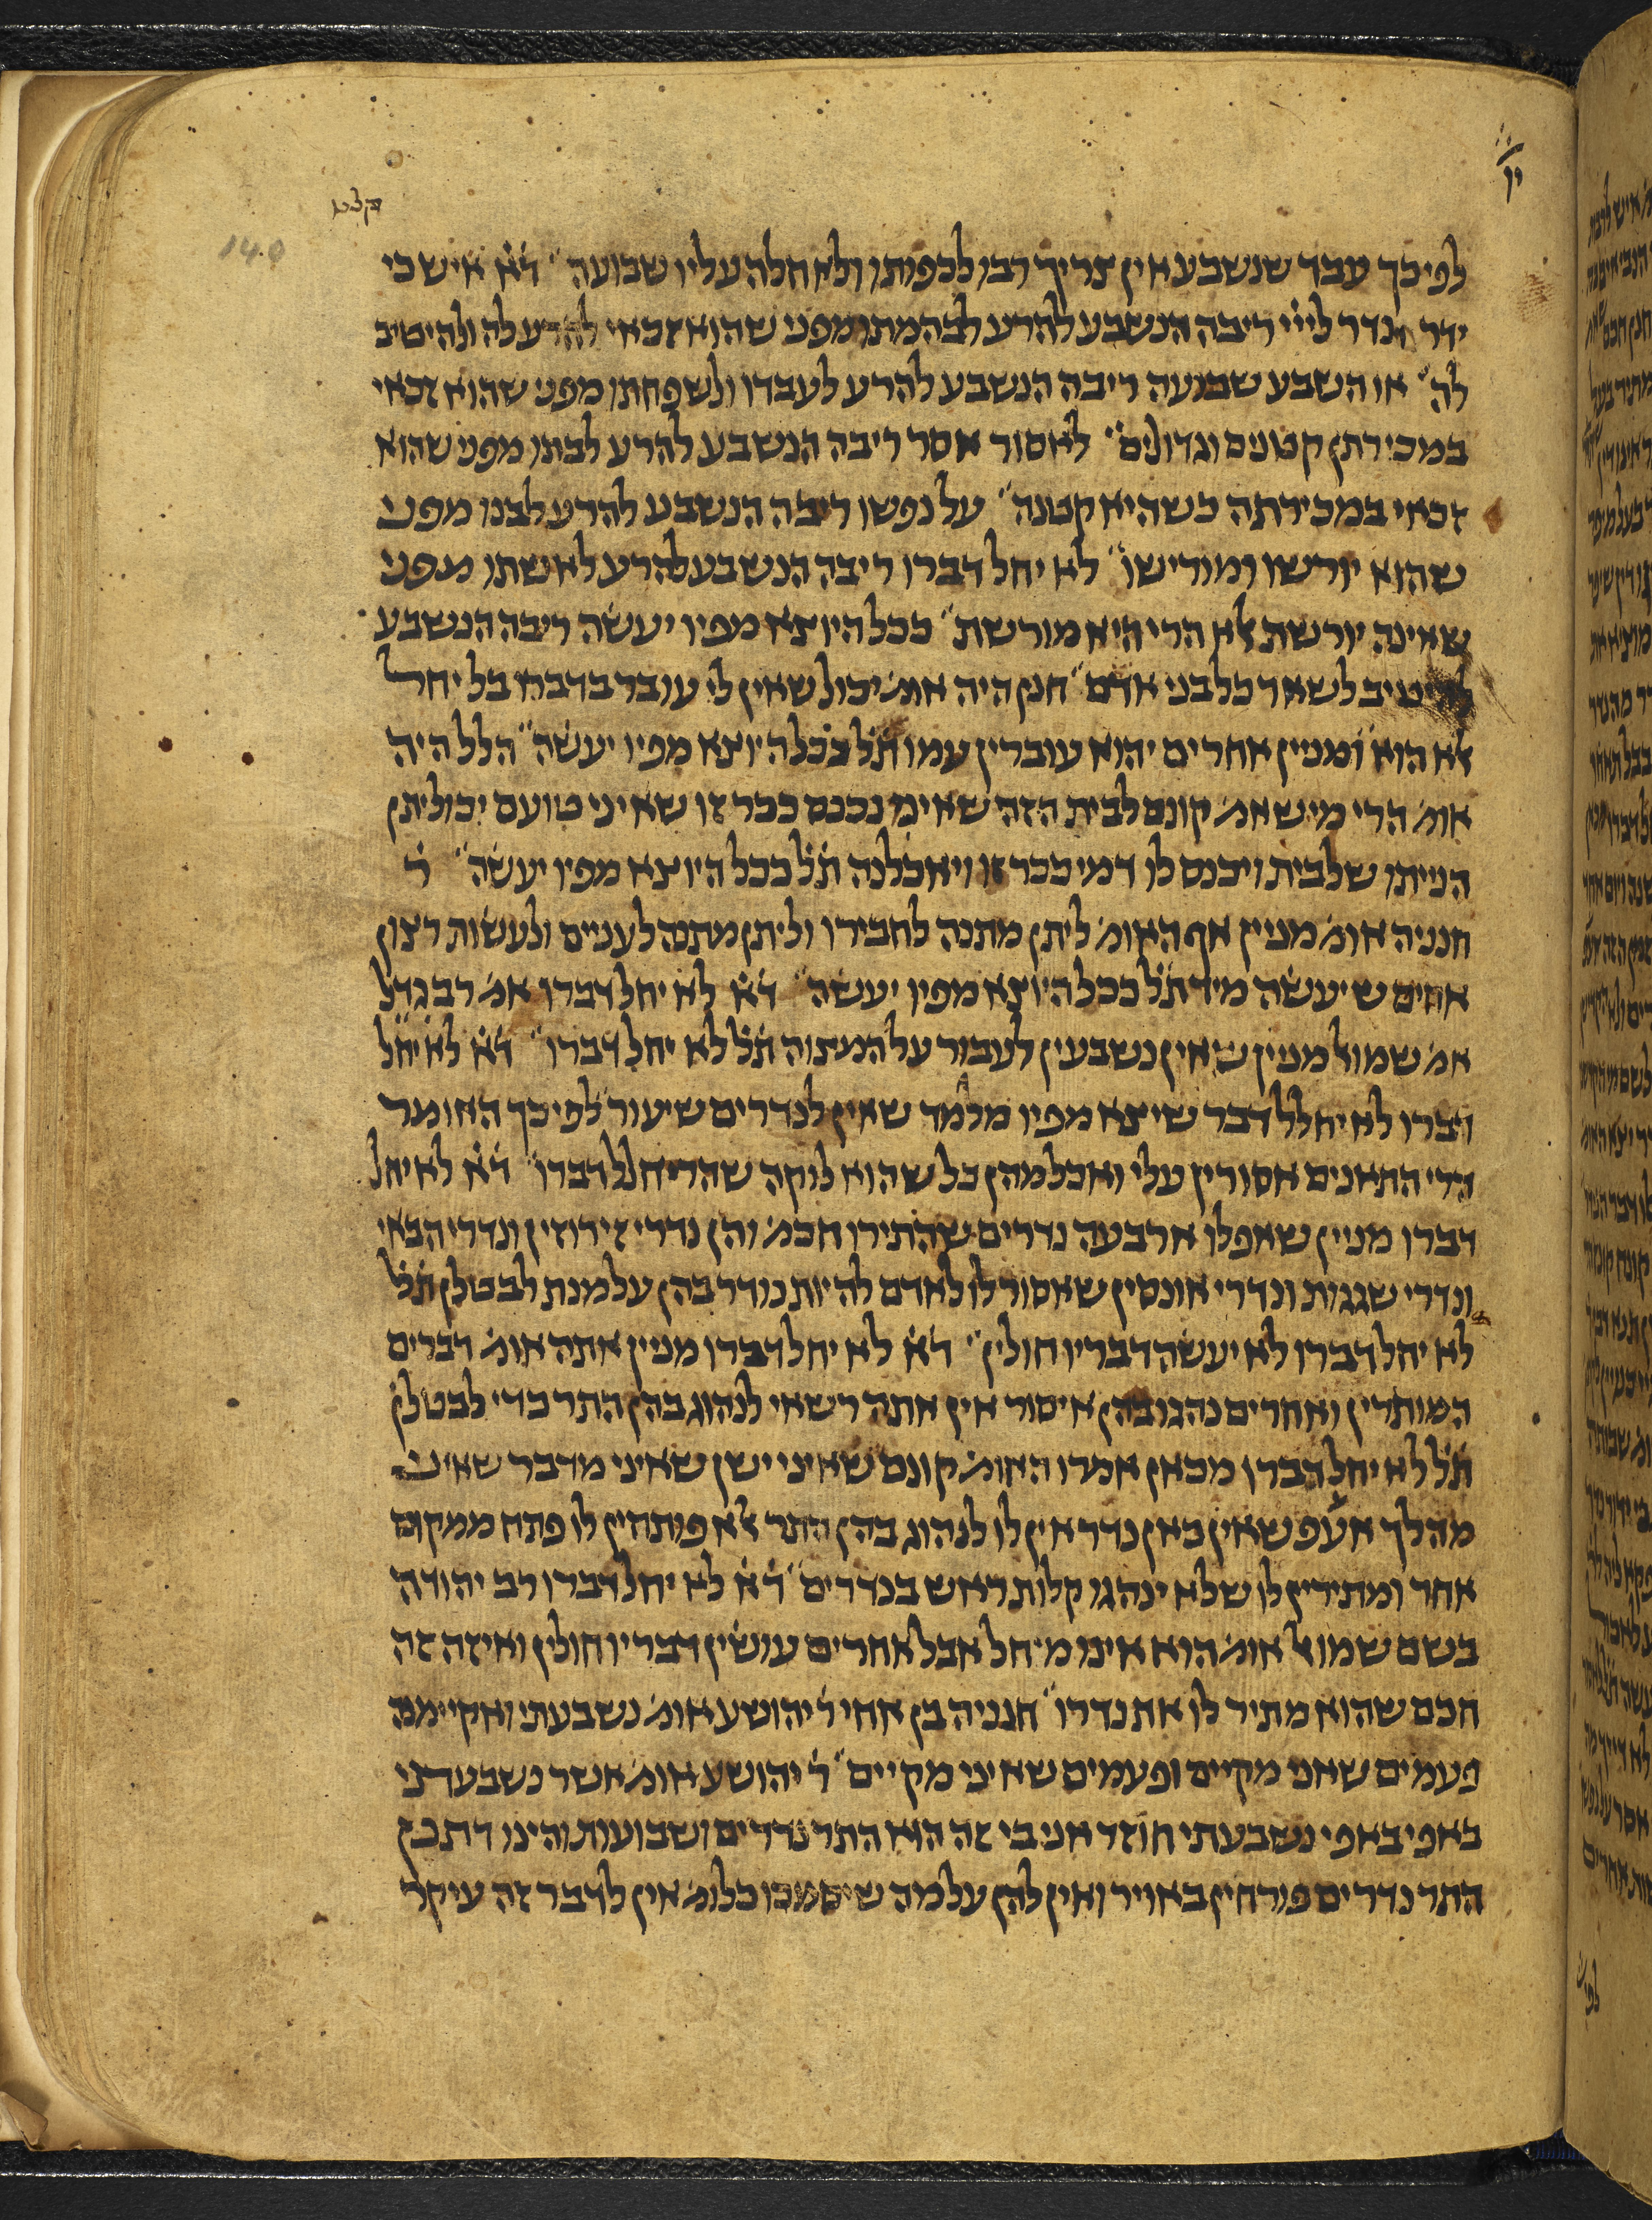 יו
קצט
140
לפיכך עבד שנשבע אין צריך רבו לכפותו ולא חלה עליו שבועה״ ד̇א̇ איש כי
ידר נדר לייי ריבה הנשבע להרע לבהמתו מפני שהוא זכאי להרע לה ולהיטיב
לה״ או השבע שבועה ריבה הנשבע להרע לעבדו ולשפחתו מפני שהוא זכאי
במכירתן קטנים וגדולים״ לאסור אסר ריבה הנשבע להרע לבתו מפני שהוא
זכאי במכירתה כשהיא קטנה״ על נפשו ריבה הנשבע להרע לבנו מפני
שהוא יורשו ומורישו״ לא יחל דברו ריבה הנשבע להרע לאשתו מפני
שאינה יורשת אלא הרי היא מורשת״ ככל היוצא מפיו יעשה ריבה הנשבע
להיטיב לשאר כל בני אדם״ חנן היה אומ׳ יכול שאין לי עובר בדבר בל יחל
אלא הוא ומניין אחרים יהוא עוברין עמו ת̇ל̇ ככל היוצא מפיו יעשה״ הלל היה
אומ׳ הרי מי שאמ׳ קונם לבית הזה שאיני נכנס ככר זו שאיני טועם יכול יתן
הנייתו שלבית ויכנס לו דמי ככר זו ויאכלנה ת̇ל̇ ככל היוצא מפיו יעשה״ ר̇
חנניה אומ׳ מניין אף האומ׳ ליתן מתנה לחבירו וליתן מתנה לעניים ולעשות רצון
אחים שיעשה מיד ת̇ל̇ ככל היוצא מפיו יעשה״ ד̇א̇ לא יחל דברו אמ׳ רב גדל
אמ׳ שמואל מניין שאין נשבעין לעבור על המצוה ת̇ל̇ לא יחל דברו״ ד̇א̇ לא יחל
דברו לא יחלל דבר שיצא מפיו מלמד שאין לנדרים שיעור לפיכך האומר
הרי התאנים אסורין עלי ואכל מהן כל שהוא לוקה שהרי חלל דברו״ ד̇א̇ לא יחל
דברו מניין שאפלו ארבעה נדרים שהתירו חכמ׳ והן נדרי זירוזין ונדרי הבאי
ונדרי שגגות ונדרי אונסין שאסור לו לאדם להיות נודר בהן על מנת לבטלן ת̇ל̇
לא יחל דברו לא יעשה דבריו חולין״ ד̇א̇ לא יחל דברו מניין אתה אומ׳ דברים
המותרין ואחרים נהגו בהן איסור אין אתה רשאי לנהוג בהן התר כדי לבטלן
ת̇ל̇ לא יחל דברו מכאן אמרו האומ׳ קונם שאיני ישן שאיני מדבר שאיני
מהלך אעפ שאין כאן נדר אין לו לנהוג בהן התר אלא פותחין לו פתח ממקום
אחר ומתירין לו שלא ינהגו קלות ראש בנדרים״ ד̇א̇ לא יחל דברו רב יהודה
בשם שמואל אומ׳ הוא אינו מיחל אבל אחרים עושין דבריו חולין ואיזה זה
חכם שהוא מתיר לו את נדרו״ חנניה בן אחי ר̇ יהושע אומ׳ נשבעתי ואקיימה
פעמים שאני מקיים ופעמים שאיני מקיים״ ר̇ יהושע אומ׳ אשר נשבעתי
באפי באפי נשבעתי חוזר אני בי זה הוא התר נדרים ושבועות והינו דתנן
התר נדרים פורחין באויר ואין להן על מה שיסמכו כלומ׳ אין לדבר זה עיקר